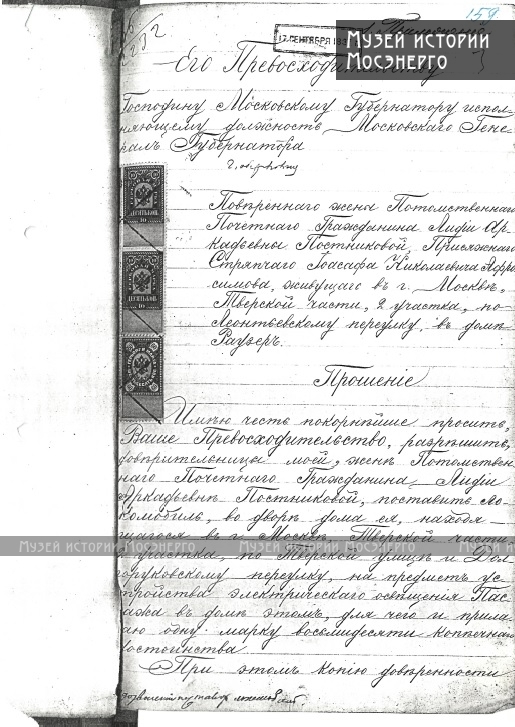 159
17 СЕНТЯБРЯ
Музей истории
Мосэнерго
Его Превосходительству
Господину Московскому Губернатору испол-
няющему должность Московскаго Гене-
ралъ Губернатора
Повѣреннаго жены Потомственнаго
Почетнаго Гражданина Лидіи Ар-
кадьевны Постниковой, Присяжнаго
Стряпчаго Іоасафа Николаевича Афро-
симова, живущаго въ г. Москвѣ,
Тверской части, 2 участка, по
Леонтьевскому переулку, въ домѣ
Раузеръ.
Прошеніе
Имѣю честь покорнѣйше просить,
Ваше Превосходительство, разрѣшить,
довѣрительницы моей, женѣ Потомствен-
наго Почетнаго Гражданина, Лидіи
Аркадьевнѣ Постниковой, поставить Ло-
комобиль, во дворѣ дома ея, находя-
щагося въ г. Москвѣ, Тверской части,
участка, по Тверской улицѣ и Дол-
горуковскому переулку, на предметъ ус-
тройства электрическаго освѣщенія Пас-
сажа въ домѣ этомъ, для чего и прила-
гаю одну марку восемидесяти копѣечнаго
достоинства
При этомъ копію довѣренности
Музей истории Мосэнерго